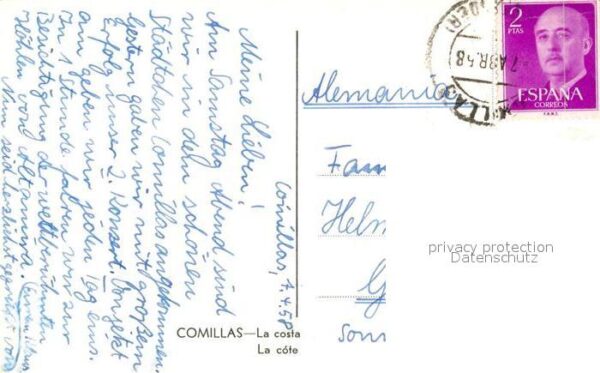 Comillas, 7.4.58
Meine Lieben!
Am Samstag Abend sind
wir in dem schönen
Städtchen Comillas angekommen.
Gestern gaben wir mit großem
Erfolg unser 2. Konzert. Von jetzt
an geben wir jeden Tag eins.
In 1 Stunde fahren wir zur
Besichtigung der weltberühmten
Höhlen von Altamira.
Nun seid herzlichst gegrüßt von
COMILLAS—La costa
La côte
2
PTAS
ESPAÑA
CORREOS
F.N.M.T.
7 ABR. 58
Alemania
Fam
Helm
G
Son
privacy protection
Datenschutz